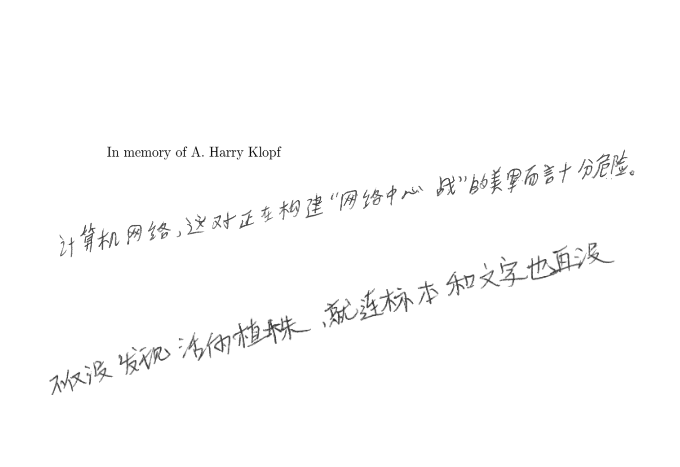 In memory of A. Harry Klopf
计算机网络,这对正在构建“网络中心战”的美军而言十分危险。
不仅没发现活的植株,就连标本和文字也再没